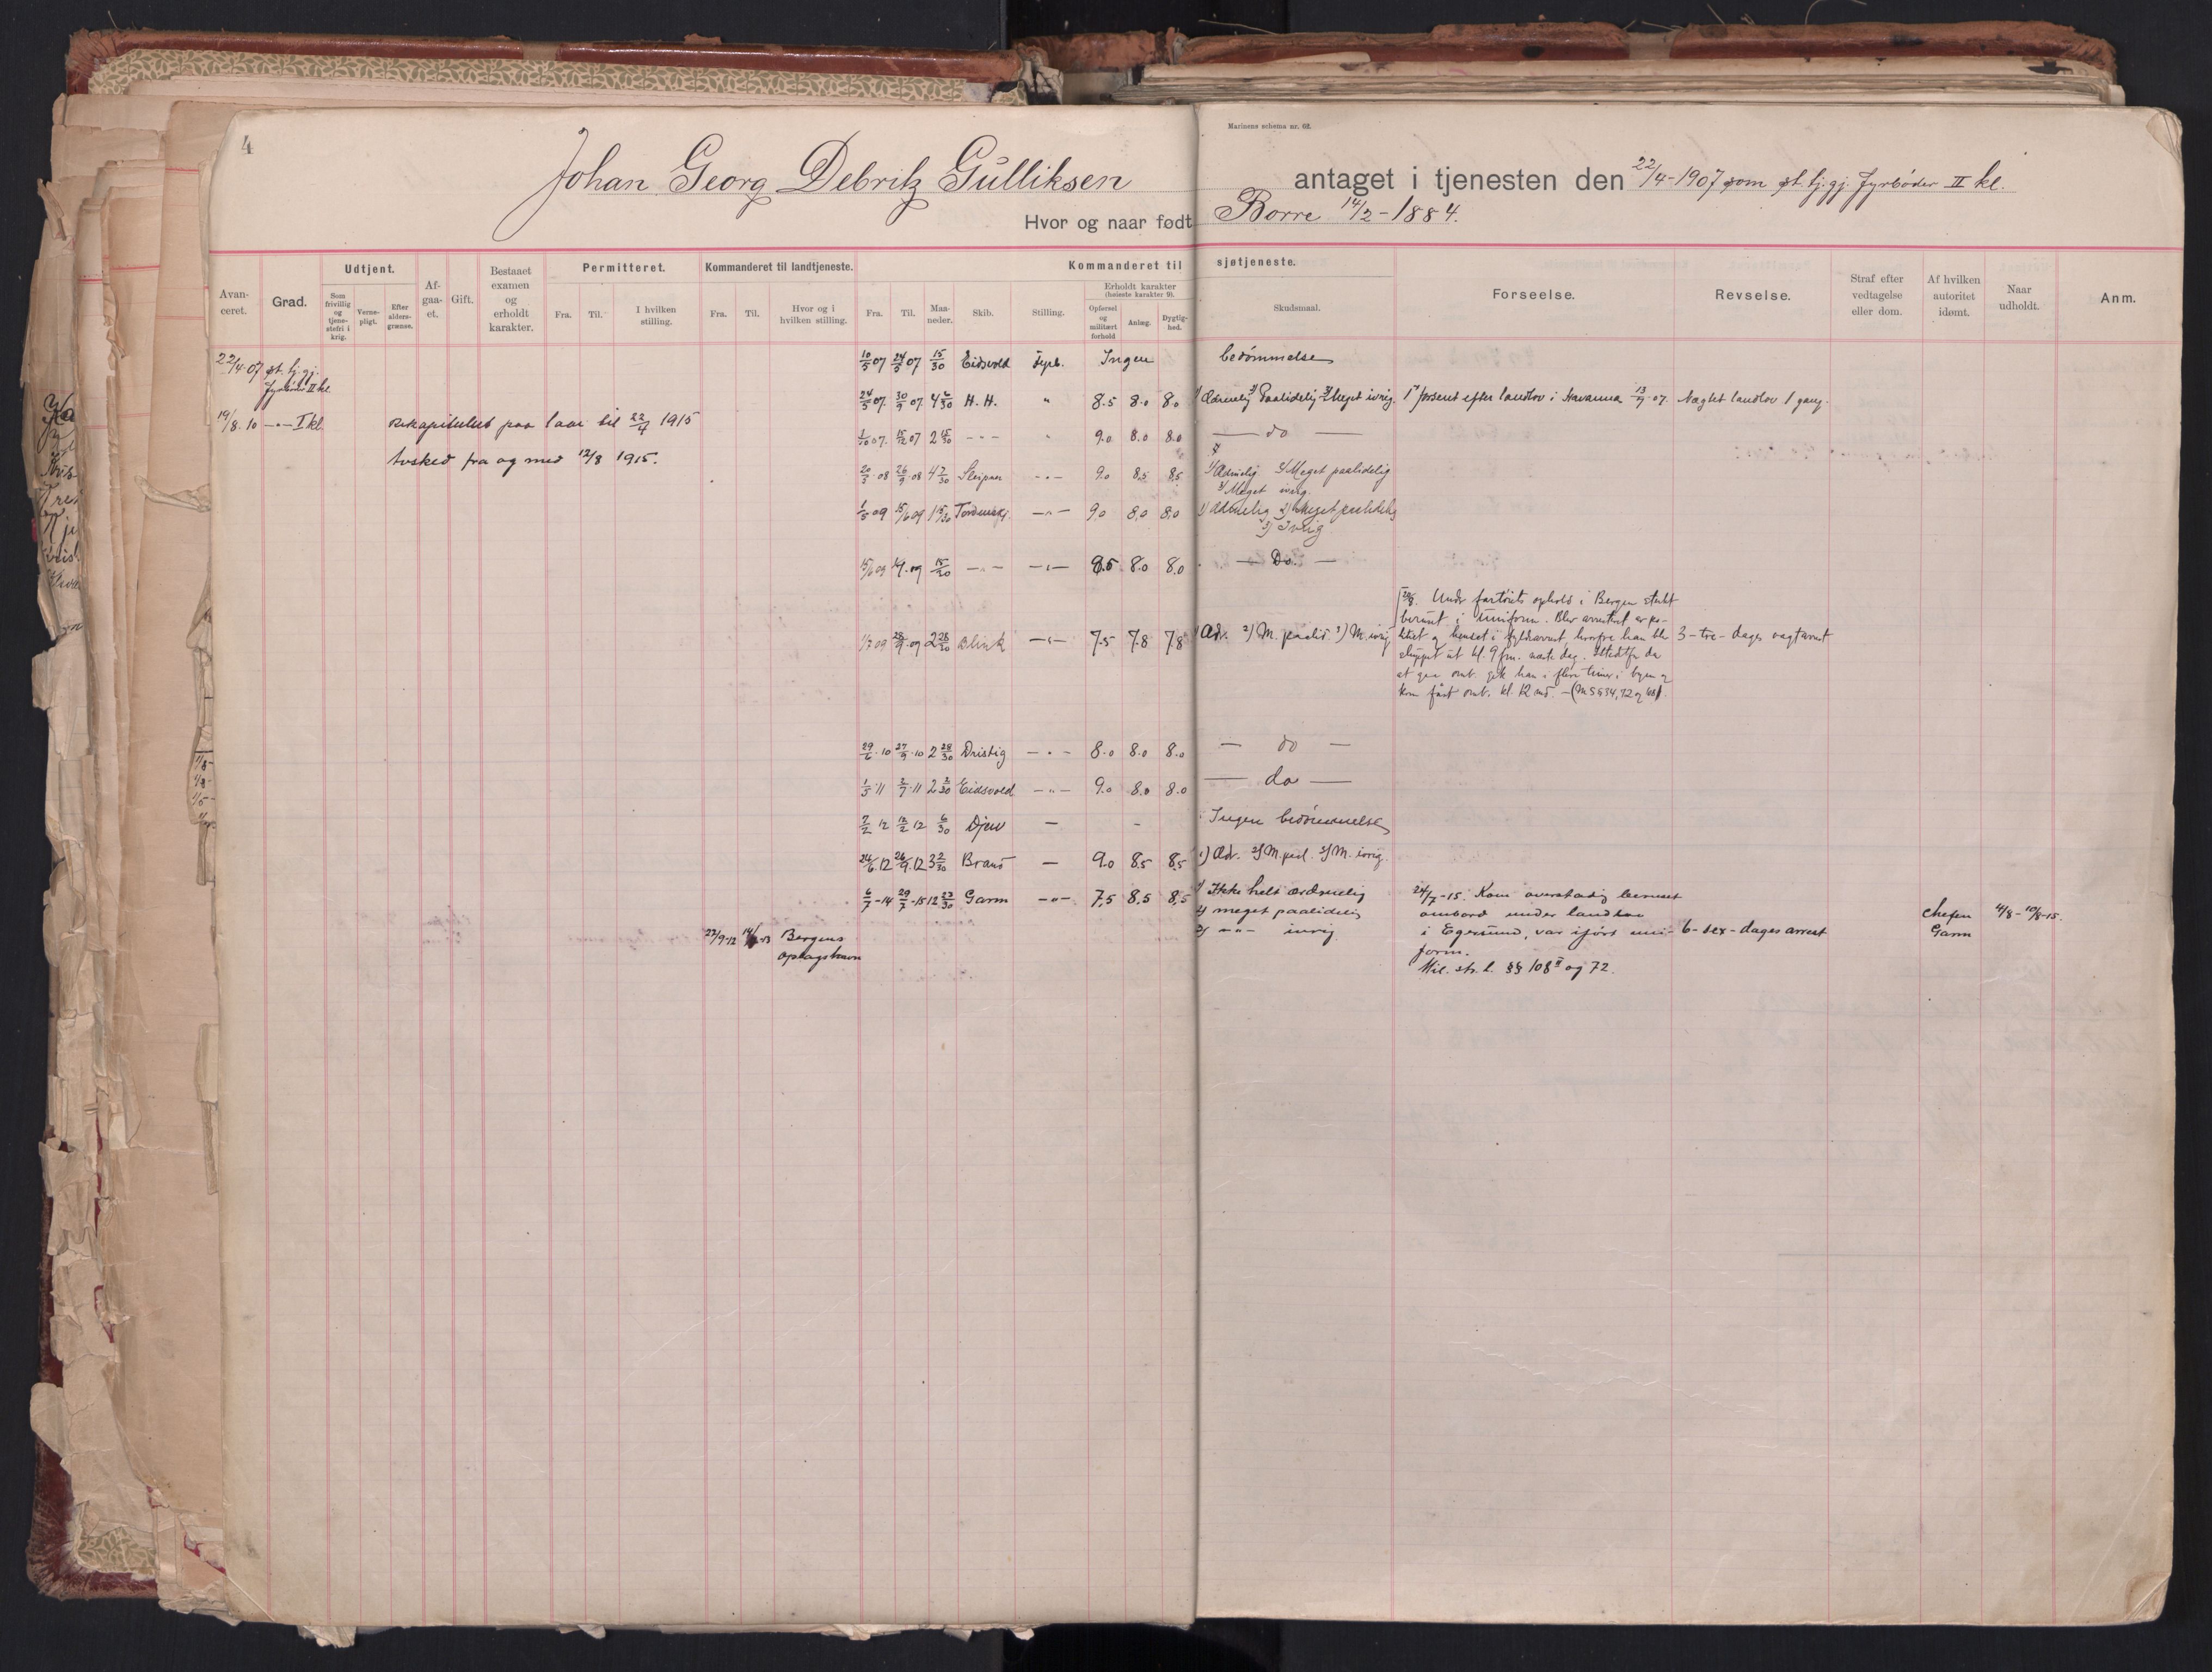 4
Marinens schema nr. 62.
Johan Georg Debritz Gulliksen antaget i tjenesten den 22/4-1907 som st. tj. gj. Fyrbøder II kl.
Hvor og naar født Borre 14/2-1884.
Avanceret. Grad. Udtjent. Som frivillig og tjenestefri i krig. Vernepligt. Efter aldersgrænse. Afgaaet. Gift. Bestaaet examen og erholdt karakter. Permitteret. Fra. Til. I hvilken stilling. Kommanderet til landtjeneste. Fra. Til. Hvor og i hvilken stilling. Kommanderet til sjøtjeneste. Fra. Til. Maaneder. Skib. Stilling. Erholdt karakter (høieste karakter 9). Opførsel og militært forhold Anlæg. Dygtighed. Skudsmaal. Forseelse. Revselse. Straf efter vedtagelse eller dom. Af hvilken autoritet idømt. Naar udholdt. Anm.
22/4-07 st. tj. gj. Fyrbøder II kl.
19/8.10 -"- I kl.
Rekapitulert paa 1 aar til 22/4 1915
Avsked fra og med 12/8 1915.
27/9-12 Bergens oplagshavn
10/5 07 24/5 07 15/30 Eidsvold Fyrb. Ingen bedømmelse
24/5 07. 30/9 07. 4 6/30 H. H. " 8.5 8.0 8.0 1) Ædruelig 2) Paalidelig 3) Meget ivrig. forsent efter landlov i Havanna 13/9-07. Nægtet landlov 1 gang.
1/10 07. 15/12 07 2 15/30 -"- " 9.0 8.0 8.0 — do —
20/5 08 26/9 08 4 7/30 Sleipner -"- 9.0 8,5 8,5 1) Ædruelig 2) Meget paalidelig
3) Meget ivrig.
1/5 09 15/6 09 1 15/30 Tordenskj. -"- 9.0 8,0 8,0 1) Ædruelig 2) Meget paalidelig
3) Ivrig
15/6 09 15/30 -"- -"- 8.5 8.0 8.0 — Do. —
1/7 09 28/9.09 2 28/30 Blink -"- 7.5 7.8 7.8 1) Æd. 2) M. paalid. 3) M. ivrig
Under fartøiets ophold i Bergen sterkt
beruset i uniform. Blev arrestert av po-
litiet og henset i hvorfra han ble
sluppet ut kl. 9 fm. næste dag. Istedetfor da
at gaa omb. gik han i flere timer i byen og
kom først omb. kl. 12 md. - (M §§ 34, 72 og 108).
3-tre-dages vagtarrest
29/6.10 27/9.10 2 28/30 Dristig -"- 8.0 8.0 8.0 — do —
1/5.11 2/7.11 2 2/30 Eidsvold -"- 9.0 8.0 8.0 — do —
7/2 12 12/2 12 6/30 Djerv — - Ingen bedømmelse
24/6.12 26/9.12 3 2/30 Brand — 9.0 8.5 8.5 1) Æd. 2) M. pad. 3) M. ivrig.
6/7-14 29/7-15 12 23/30 Garm -"- 7,5 8,5 8,5 1) Ikke helt ædruelig
2) meget paalidelig
3) -"- ivrig.
24/7-15. Kom overstadig beruset
ombord under landlov
i Egersund, var iført uni-
form.
Mil. str. l. §§ 108 II og 72.
6-sex-dages arrest
Chefen Garm
4/8-10/8-15.